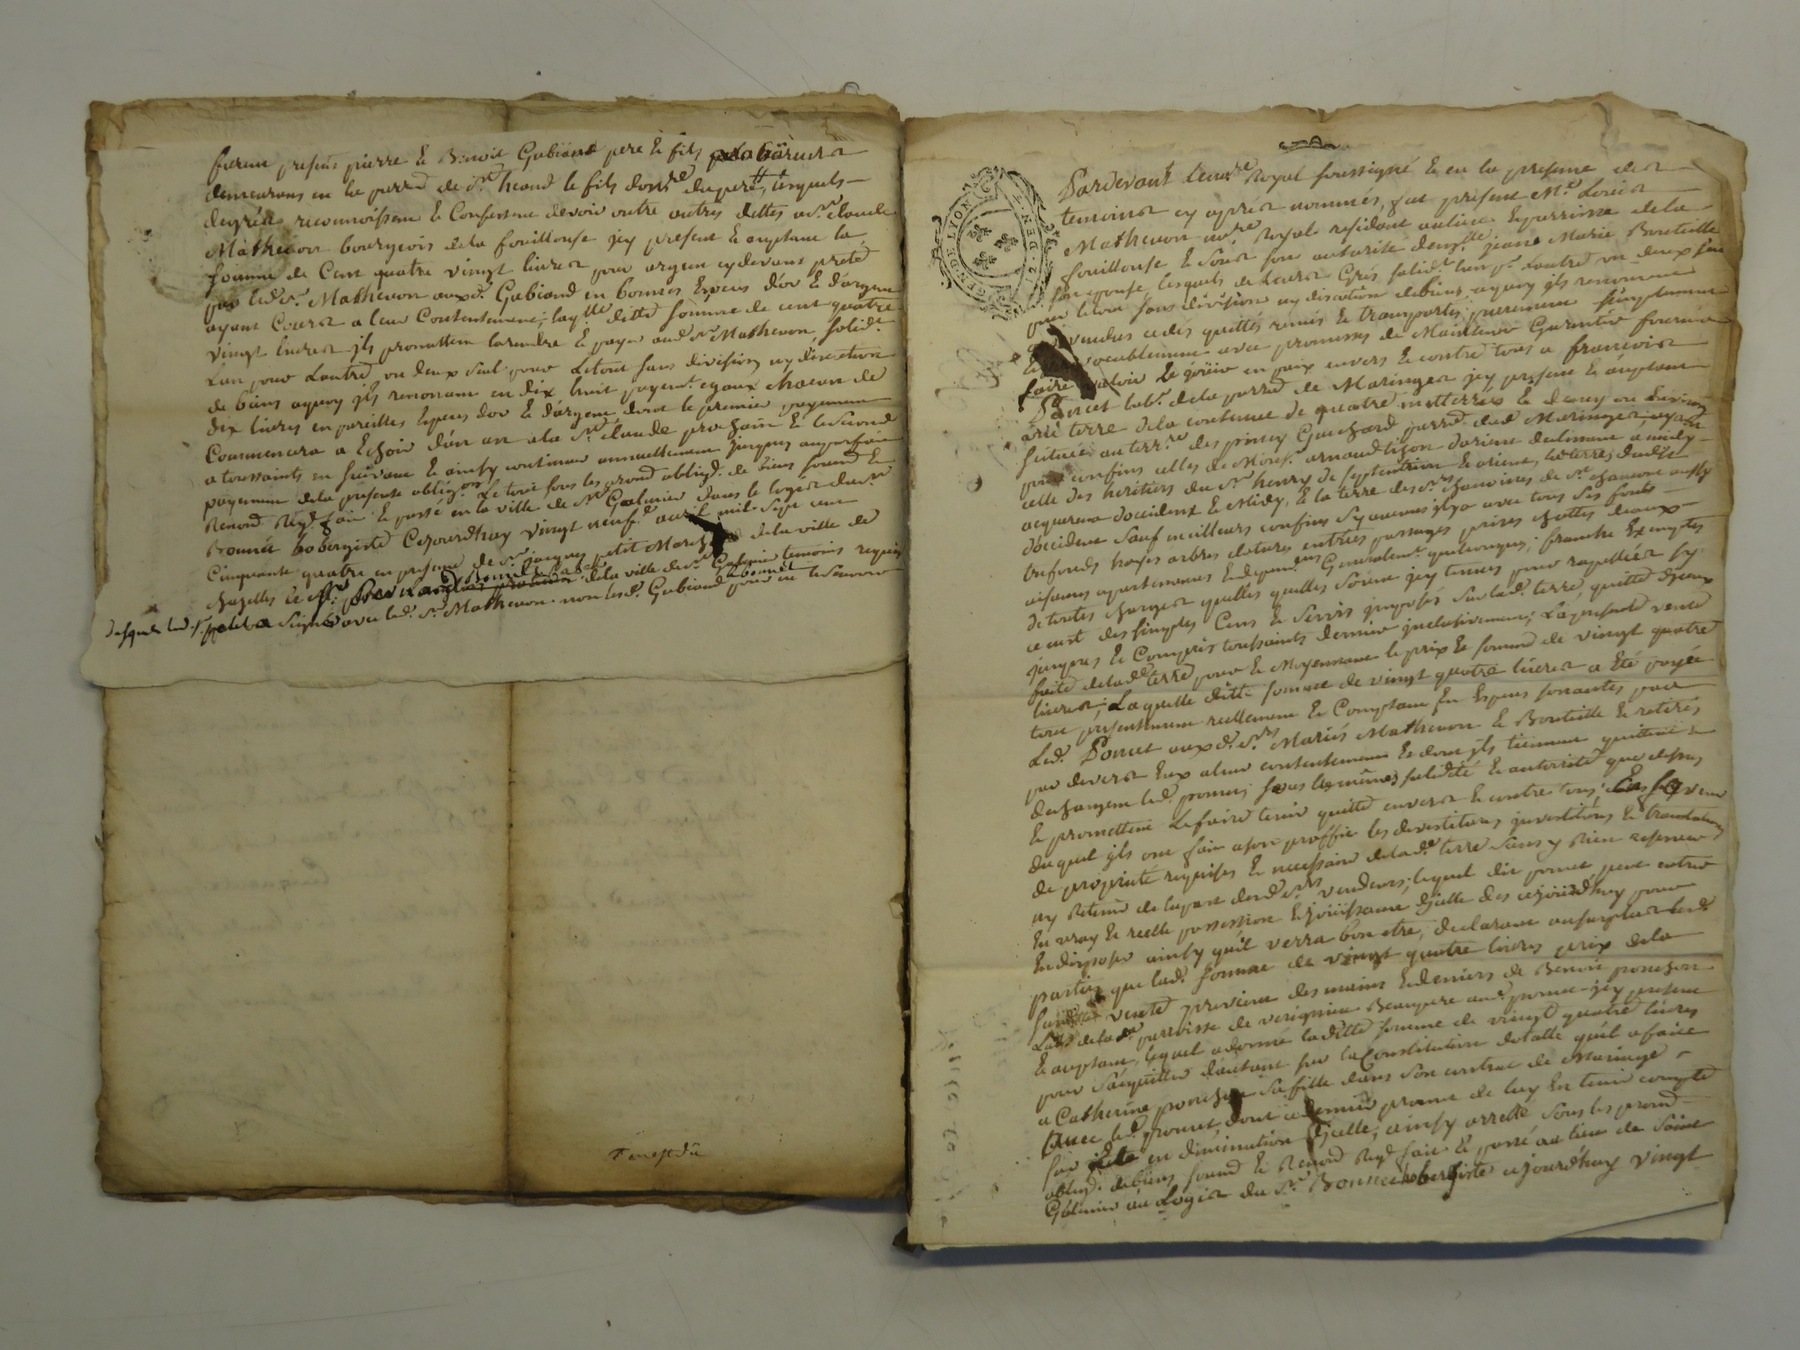 furent presens pierre & Benoit Gabiand pere & fils
demeurans en la parr.e de St heand le fils dud. pere, lesquels
de gré reconnoissent & Confessent devoir outre autres dettes a sr. claude
Mathevon bourgeois dela fouillouse jcy present & acceptant la
somme de Cent quatre vingt livres pour argent cydevant preté
par led. sr. Mathevon auxd. Gabiand en bonnes Especes d'or & d'argent
ayant Cours a leur Contentement, laq.lle ditte somme de cent quatre
vingt livres jls promettent la rendre & payer aud. sr Mathevon solid.t
L'un pour L'autre, un deux seul pour Letout sans division ny discution
de biens aquoy jls renoncent en dix huit payem.t egaux chacun de
dix livres en pareilles Especes d'or & d'argent dont le premier payement
Commencera a Echoir d'un an a la St. claude prochain & le second
a toussaints en suivant & ainsy continuer annuellement jusques au parfait
payement dela presente oblig.on Le tout sous les prom.d oblig.d de biens soum.d &
Renon.d Req.d fait & passé en la ville de St Galmier dans le logis du sr
Bonnet hobergiste Cejourdhuy vingt neuf.e avril mil sept cent
Cinquante quatre en presence de sr. jacques petit March. dela ville de
chazelles & dela ville de St. Galmier temoins requis
desquels led. sr petit a signé avec led. sr. Mathevon. non lesd. Gabiand pour ne le savoir
Tenespdû
G. DE LYON
Pardevant le no.re Royal soussigné & en la presence des
temoins cy aprés nommés, fut présent M.e Loüis
Mathevon no.re Royal residant au lieu & parroisse dela
fouillouse & sous son autorité dem.lle jeane Marie Bouteille
son epouse, lesquels de Leurs Grés solid.t L'un p.r L'autre un deux seul
pour letout sans division ny discution de biens aquoy jls renoncent
vendus cedes quittés remis & transportés purement simplement
& jrrevocablement avec promesses de Maintenir Garentir fournir
faire valoir & joüir en paix envers & contre tous a francois
Poncet lab.r dela parr.e de Maringes jcy present & acceptant
une terre dela contenue de quatre metterées & demy ou Environ
scituée au terr.re des pincy Guichard parr.e dud. Maringes, ayant
pour confins celles de Mons.r arnaud lizon d'orient declinant a midy
celle des heritiers du Sr. henry de septentrion & orient, la terre dudit
acquereur d'occident & Midy, & la terre des srs chanoines de St. chamond aussy
d'occident sauf meilleurs confins sy aucuns jl y a avec tous ses fonds
trefonds hayes arbres clotures entrées passages prises chottes d'eaux
aisances apartenances & dependances Generalem.t quelconques; franche & exempte
de toutes charges quelles quelles soient jcy tenues pour rapellées sy
ce n'est des simples Cens & Servis jmposés sur lad. terre, quitte d'jceux
jusques & Compris toussaints dernier jnclusivement; La presente vente
faite delad.e terre pour & Moyennant le prix & somme de vingt quatre
livres; Laquelle ditte somme de vingt quatre livres a été payée
tout presentement reellement & Comptant en Especes sonantes par
Led. Poncet auxd. srs Mariés Mathevon & Bouteille & retirés
par devers Eux a leur contentement & dont jls tiennent quitte &
dechargent led. poncet, sous les mêmes solidité & autorité que dessus
& promettent Le faire tenir quitte envers & contre tous; En faveur
duquel jls ont fait a son proffit les devestitures jnvestitures & translations
de propriété requises & necessaire delad.e terre sans y Rien reserver
ny Retenir de la part desd. srs vendeurs; lequel dit poncet peut entrer
En vraye & reelle possession & jouissance d'jcelle des cejourdhuy pour
En disposer ainsy qu'il verra bon etre, declarant au surplus lesd.
parties que lad. somme de vingt quatre livres prix dela
vente provient des mains & deniers de Benoit ponchon
Lab.r delad.e parroisse de verignieu Beaupere aud. poncet jcy present
& acceptant, lequel a donné laditte somme de vingt quatre livres
pour s'acquitter d'autant sur la Constitution dotalle qu'il a faite
a Catherine ponchon sa fille dans son contrat de Mariage
avec led. poncet, dont ce dernier promet de luy En tenir compte
sur & en diminution d'jcelle; ainsy arretté sous les prom.d
oblig.d de biens soum.d & Renon.d Req.d fait & passé au lieu de Saint
Galmier au Logis du Sr. Bonnet hobergiste cejourdhuy vingt